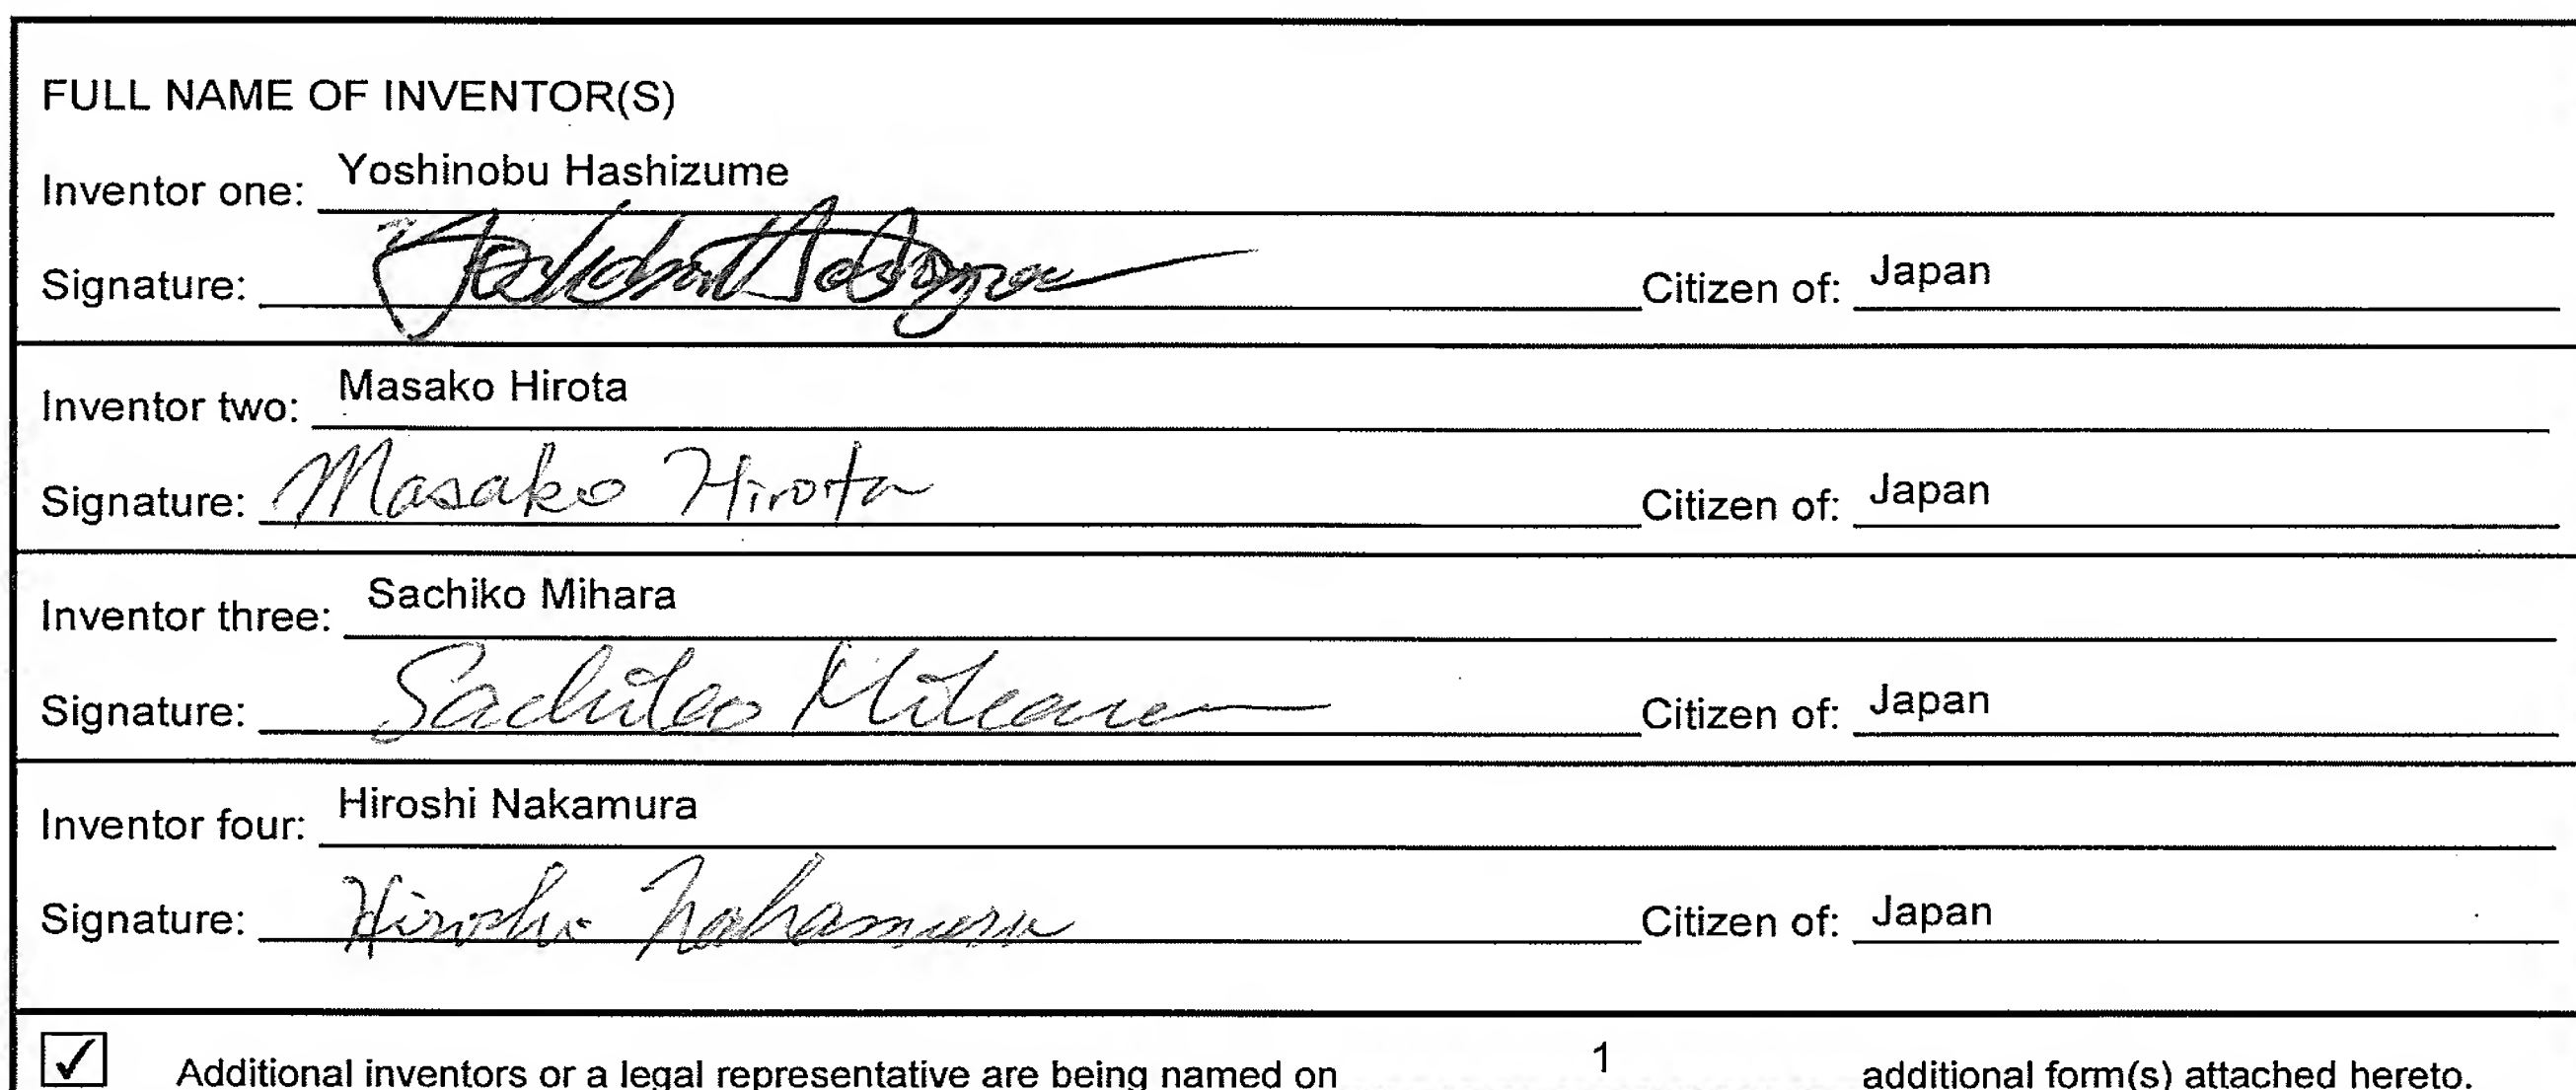 FULL NAME OF INVENTOR(S)
Inventor one: Yoshinobu Hashizume
Signature: Citizen of: Japan
Inventor two: Masako Hirota
Signature: Masako Hirota Citizen of: Japan
Inventor three: Sachiko Mihara
Signature: Sachiko Mihara Citizen of: Japan
Inventor four: Hiroshi Nakamura
Signature: Hiroshi Nakamura Citizen of: Japan
Additional inventors or a legal representative are being named on 1 additional form(s) attached hereto.